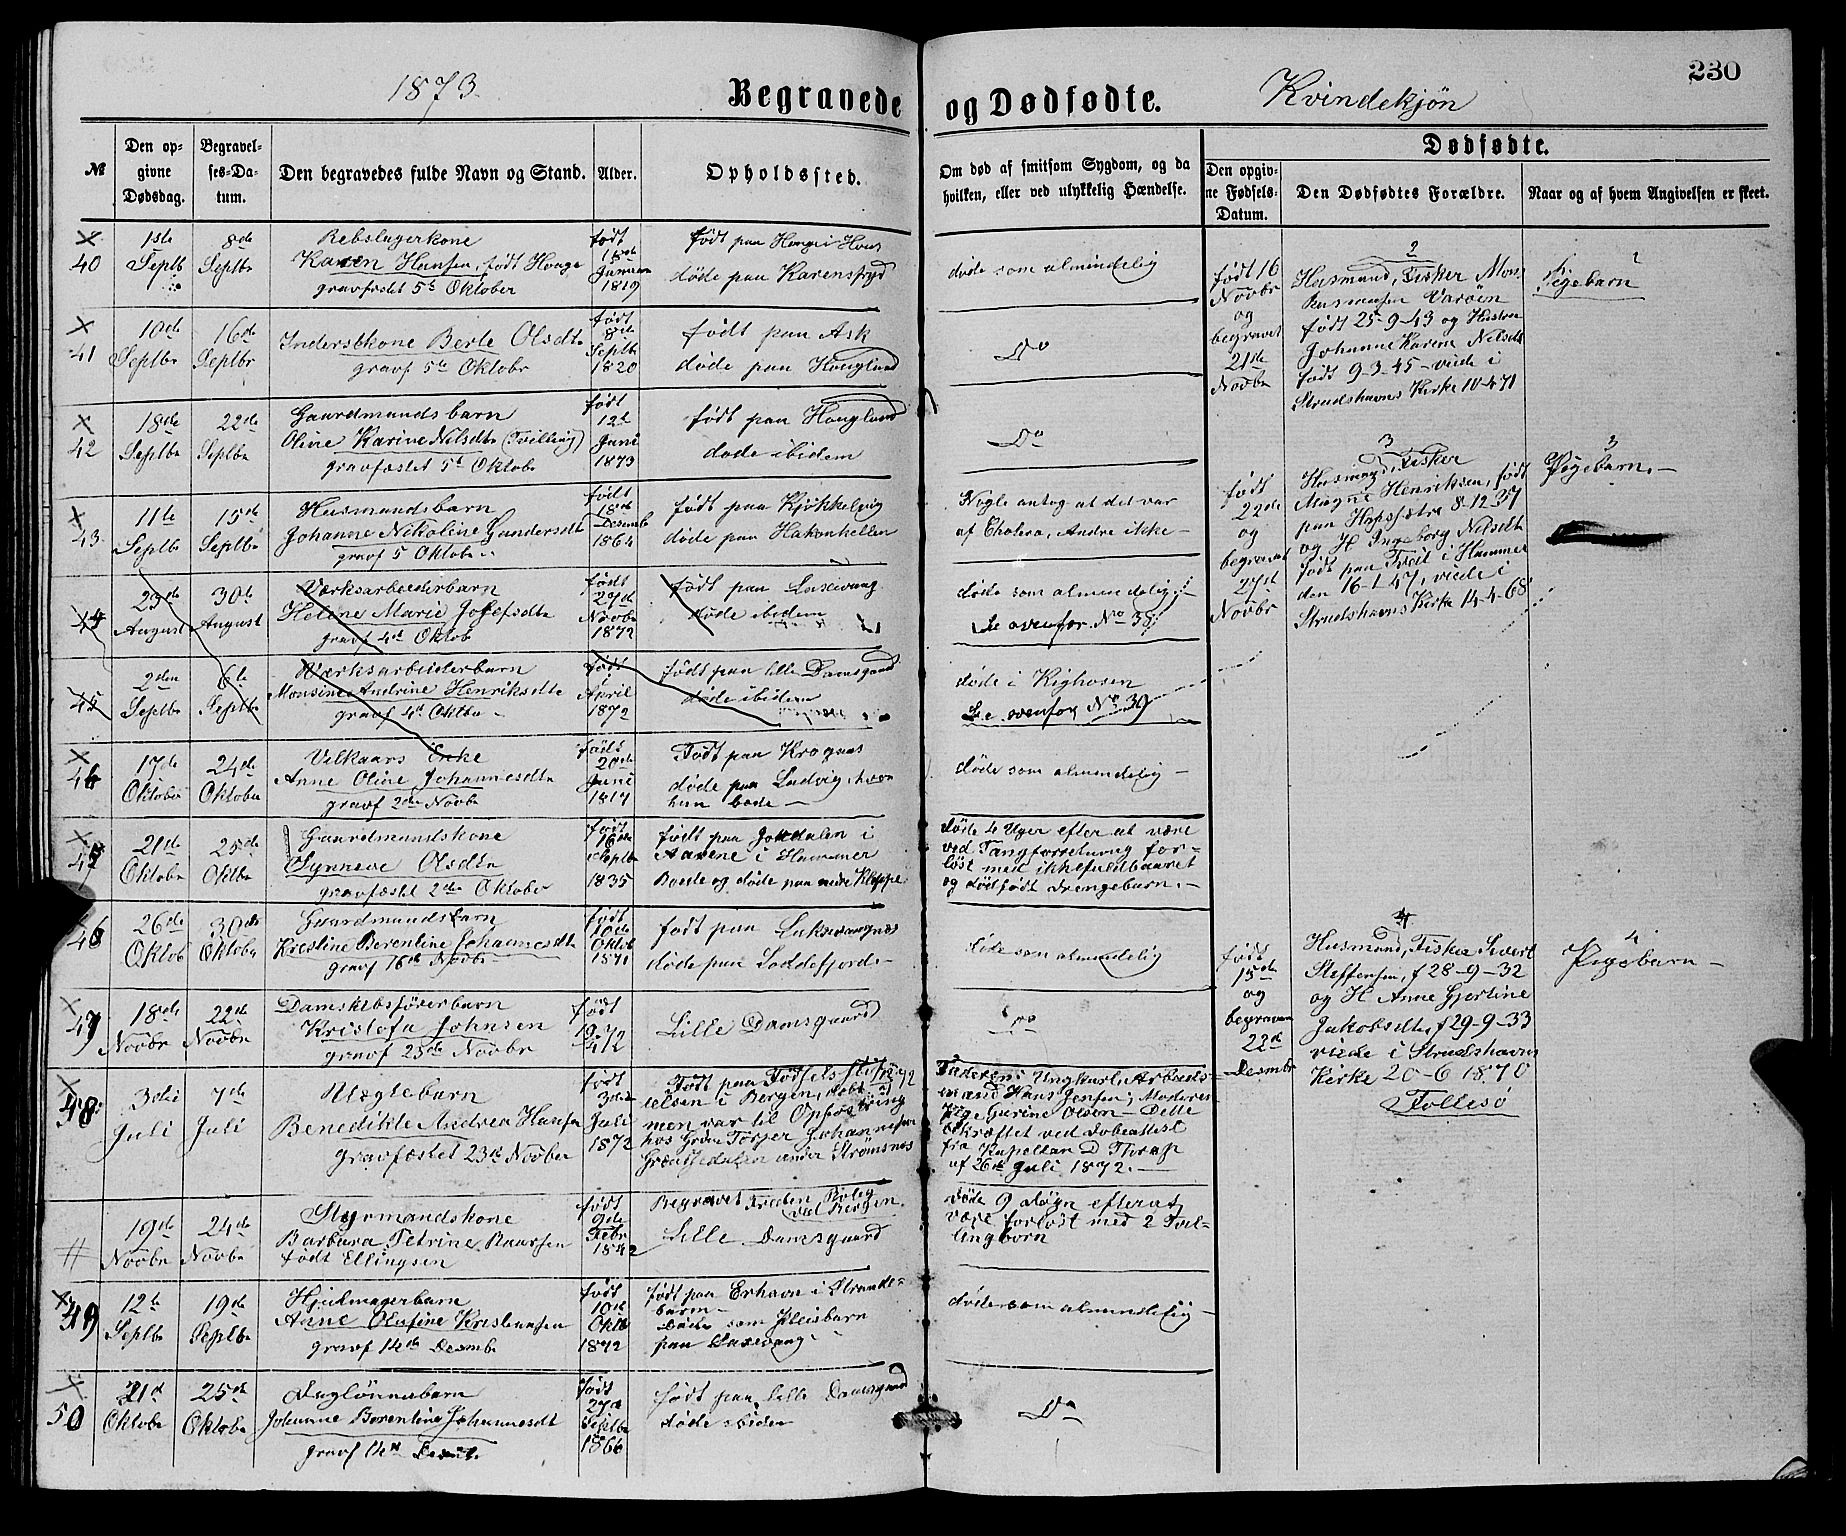 230
1873.
Begravede og Dødfødte.
Kvindekjøn
№
Den opgivne Dødsdag.
Begravelses-Datum.
Den begravedes fulde Navn og Stand.
Alder.
Opholdssted.
Om død af smitsom Sygdom, og da hvilken, eller ved ulykkelig Hændelse.
Dødfødte.
Den opgivne Fødsels-Datum.
Den Dødfødtes Forældre.
Naar og af hvem Angivelsen er skeet.
40
1ste Septb
8de Septbr
Rebslagerkone
Karen Hansen, født Hauge
gravfæstet 5te Oktober
født
Januar
1819
født paa Hauge i Hous
døde paa Karensfryd
døde som almindelig
41
10de Septbr
16de Septbr
Inderstkone Berte Olsdtr
gravf 5te Oktobr
født
8de
Septbr
1820
født paa Ask
døde paa Houglund
Do
42
18de Septbr
22de Septbr
Gaardmandsbarn
Oline Karine Nilsdtr (Tvilling)
gravfæstet 5te Oktobr
født
12te
Juni
1873
født paa Houglund
døde ibidem
Do
43
11te Septbr
15de Septbr
Husmandsbarn
Johanne Nikoline Gundersdtr
gravf 5 Oktobr
født
18de
Desemb
1864
født paa Kjøkkelvig
døde paa Hakonhellen
Nogle antog at det var
af Cholera, Andre ikke
44
23de August
30te August
Værksarbeiderbarn
Heline Marie Josefsdtr
gravf 4de Oktob
født
27de
Novbr
1872
født paa Laxevaag
døde ibidem
døde som almindelig
Se ovenfor No 38
45
2den Septbr
6te Septbr
Værksarbeiderbarn
Monsine Andrine Henriksdtr
gravf 4de Oktbr
født
April
1872
født paa lille Damsgaard
døde ibidem
døde i Kighosten
Se ovenfor No 39
46
17de Oktobr
24de Oktobr
Vilkaars Enke
Anne Oline Johannesdtr
gravf 2den Novbr
født
20de
Juni
1817
Født paa Krognæs
døde paa Ludvig, hvor
hun boede
døde som almindelig
45
21de Oktobr
25de Oktbr
Gaardmandskone
Synneve Olsdtr
gravfæstet 2den Oktober
født
16de
Septbr
1835
født paa Jordalen i
Aasene i Hammer
Boede og døde paa nedre Kleppe
døde 4 Uger efter at være
ved Tangforretning for-
løst med ikkefuldbaaret
og dødfødt Drengebarn.
46
26de Oktob
30de Oktobr
Gaardmandsbarn
Kristine Berentine Johannesdtr
gravf 16de Novbr
født
10de
Oktob
1871
født paa Laksevaagnæs
døde paa Loddefjord
døde som almindelig
47
18de Novbr
22de Novbr
Damskibsførerbarn
Kristofa Johnsen
gravf 23de Novbr
født
19
4/72
Lille Damsgaard
Do
48
3die Juli
7de Juli
Uægtebarn
Benedikte Andrea Hansen
gravfæstet 23de Novber
født
3die
Juli
1872
Født paa Fødselsstif-
telsen i Bergen, døbt
men var til Opfostring
hos Grdm Torger Johannessen
Grønstedalen under Strømsnes
Faderen: Ungkarl, Arbeids-
mand Hans Jensen, Moderen
Pige Gurine Olsen - Dette
bekræftet ved Døbeattest
fra Kapellan D Thrap
af 26de Juli 1872.
19de Novbr
24de Novbr
Styrmandskone
Barbara Petrine Baarsen
født Ellingsen
født
9de
Febr
1842
Begravet Freden Bolig
ved Bergen.
Lille Damsgaard
døde 9 Døgn efterat
være forløst med 2 Tvil-
lingbørn
49
12te Septbr
19de Septbr
Hjulmagerbarn
Anne Olufine Kristiansen
gravf 14de Desmbr
født
10de
Oktb
1872
født paa Erhavn i Strande-
barm
Døde som Pleiebarn
paa Laxevaag
døde som almindelig
50
21de Oktobr
25de Oktobr
Daglønnerbarn
Johanne Berentine Johannesdtr
gravf 14de Desmb
født
27de
Septbr
1866
født paa lille Damsgaard
døde ibidem
Do
født 16
Novbr
og
begravet
21de
Novbr
2
Husmand, Fisker Mons
Rasmussen Varøen
født 25-9-43 og Hustru
Johanne Karine Nilsdtr
født 9-3-45 - viede i
Strudshavns Kirke
Pigebarn
født
22de
og
begravet
27de
Novbr
3
Husmand, Fisker
Magne Henriksen, født
paa Hopssætre 8-12-37
og H Ingeborg Nilsdtr
født paa Tveit i Hammer
den 16-1-47, viede i
Strudshavns Kirke 14-4-68
3
Pigebarn.
født
15de
og
begraven
22de
Desmbr
4
Husmand, Fisker Sivert
Steffensen, f 28-9-32
og H Anne Gjertine
Jakobsdtr, f 29-9-33
viede i Strudshavns
Kirke 20-6 1870
Follesø
4
Pigebarn